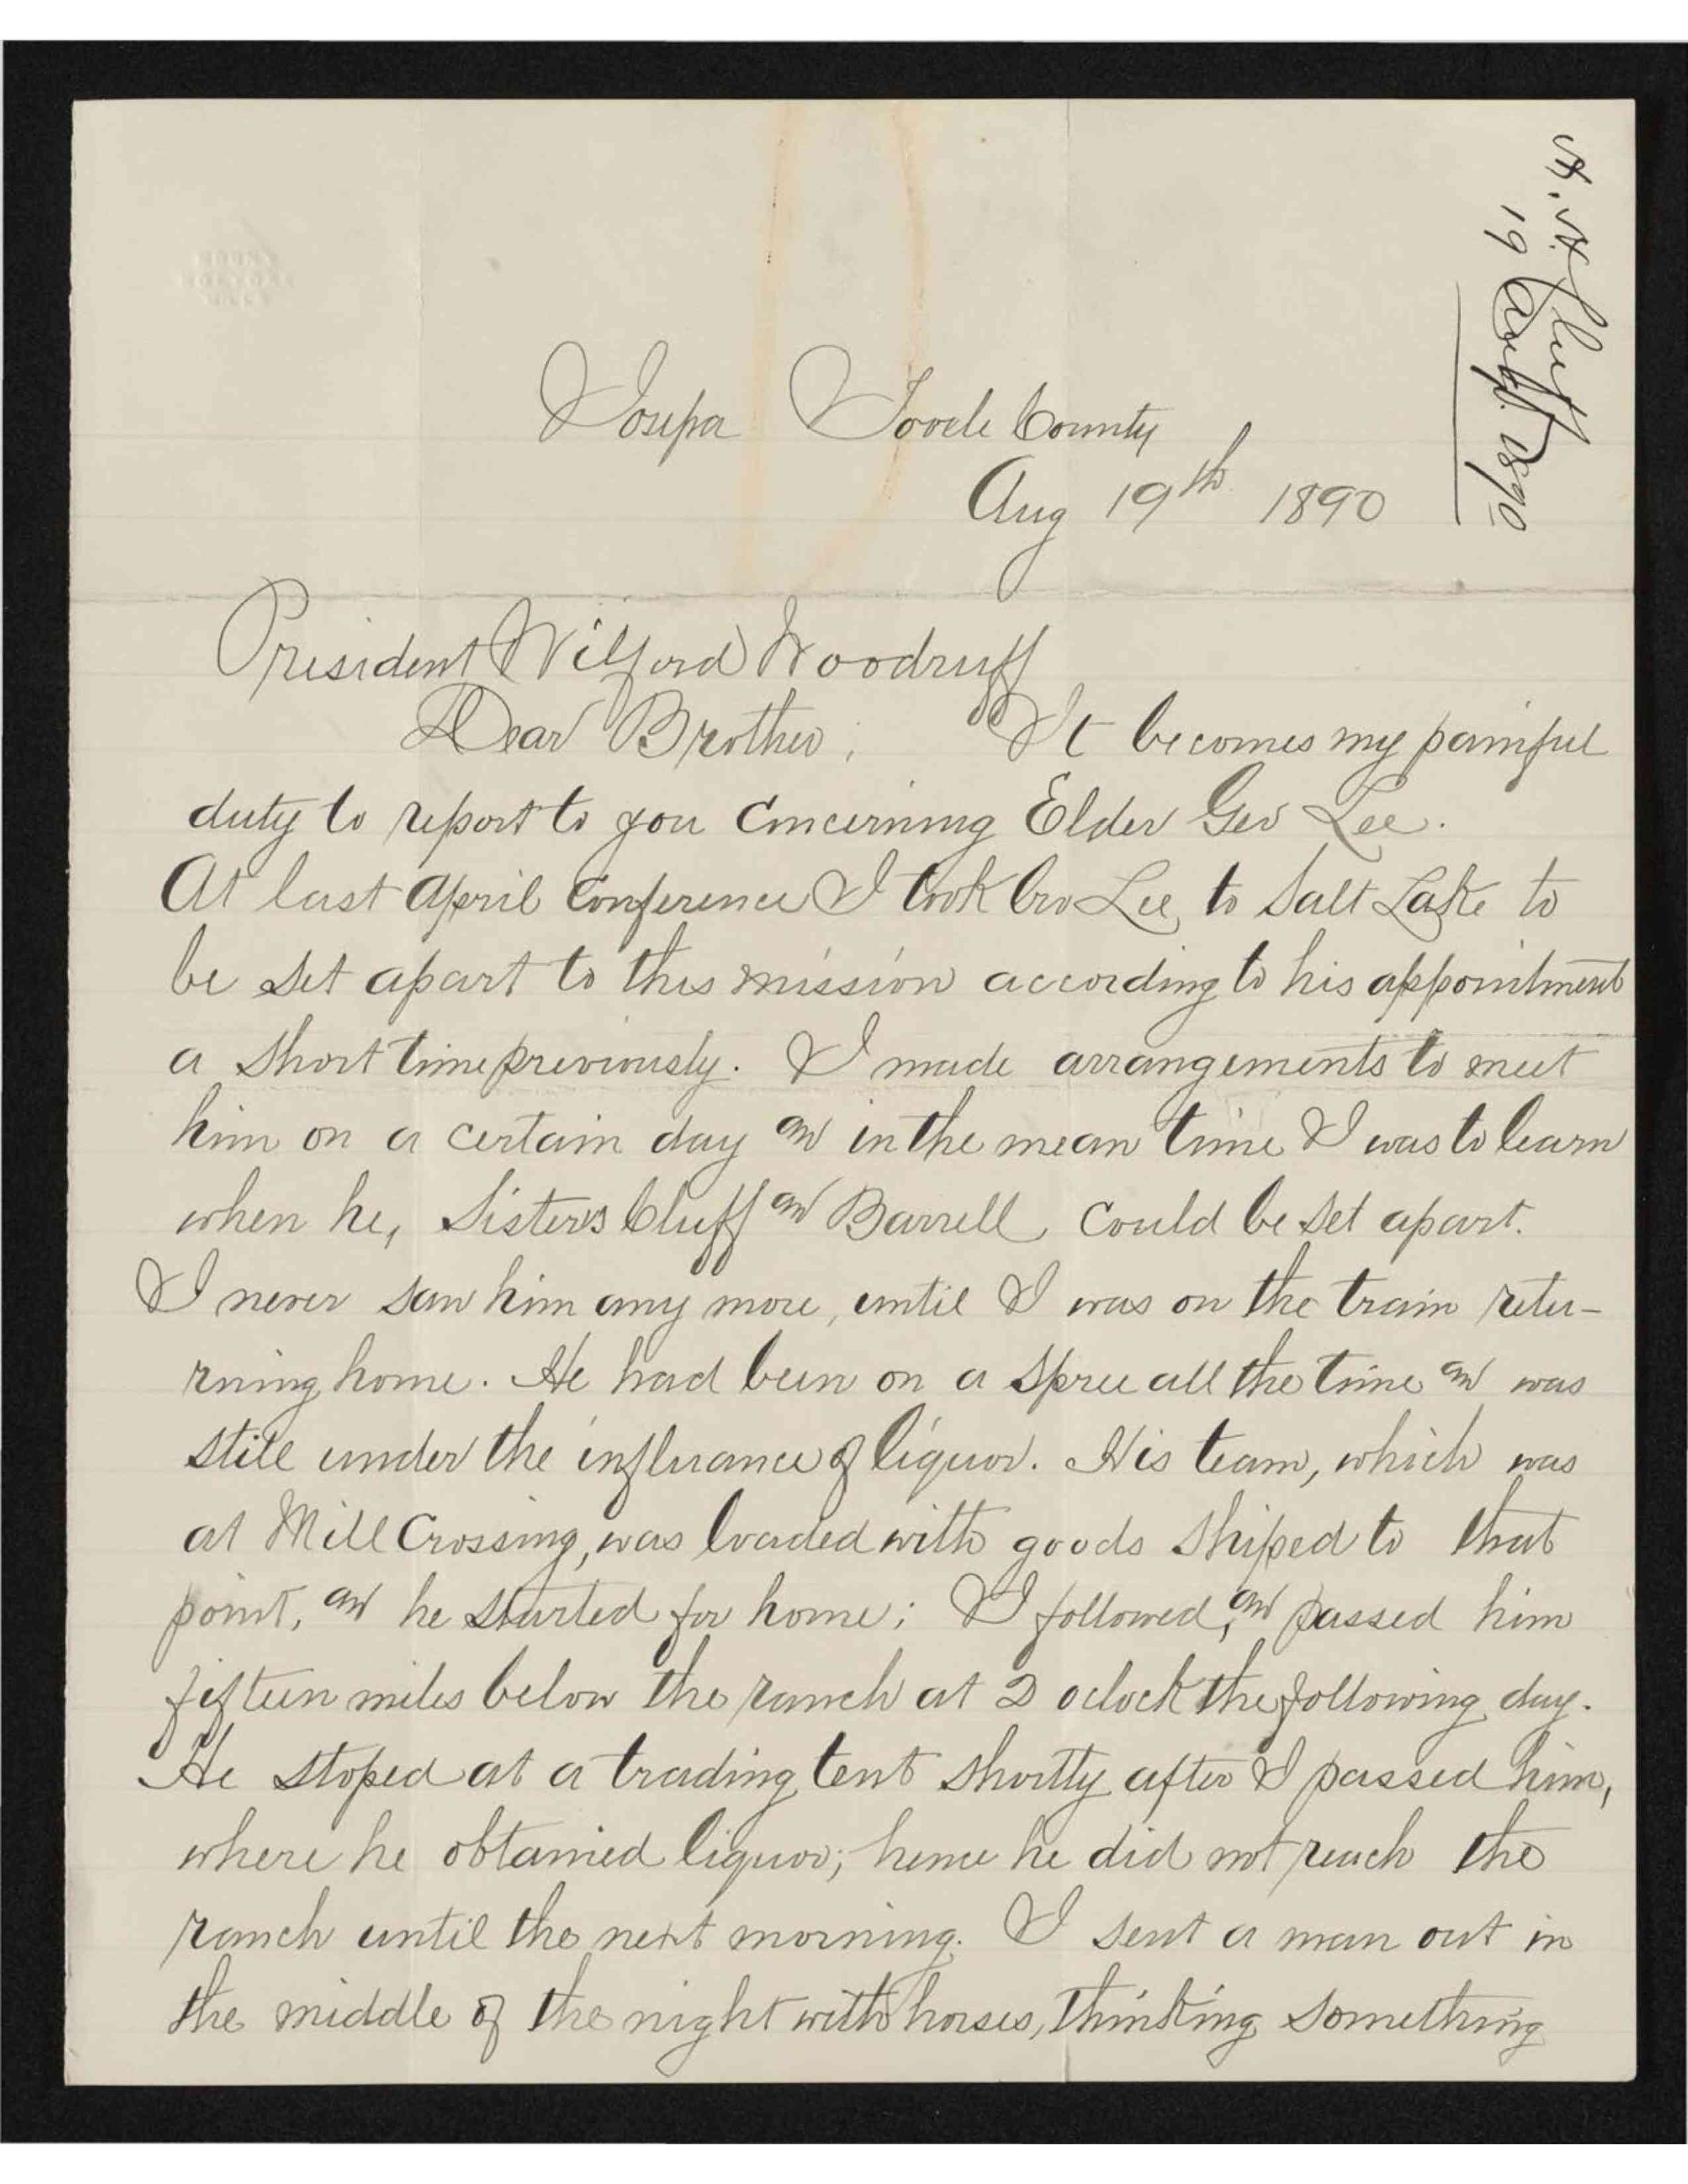 H. H. Cluff
19 Aug. 1890
Iosepa Tooele County
Aug 19th 1890
President Wilford Woodruff
Dear Brother; It becomes my painful
duty to report to you concerning Elder Geo Lee.
At last April Conference I took bro Lee, to Salt Lake to
be set apart to this mission according to his appointment
a short time previously. I made arrangements to meet
him on a certain day and in the mean time I was to learn
when he, Sisters Cluff and Barrell, could be set apart.
I never saw him any more, until I was on the train retu-
rning home. He had been on a spree all the time and was
still under the influance of liquor. His team, which was
at Mill Crossing, was loaded with goods shiped to that
point, and he started for home; I followed, and passed him
fifteen miles below the ranch at 2 oclock the following day.
He stoped at a trading tent shortly after I passed him,
where he obtained liquor; hence he did not reach the
ranch until the next morning. I sent a man out in
the middle of the night with horses, thinking something